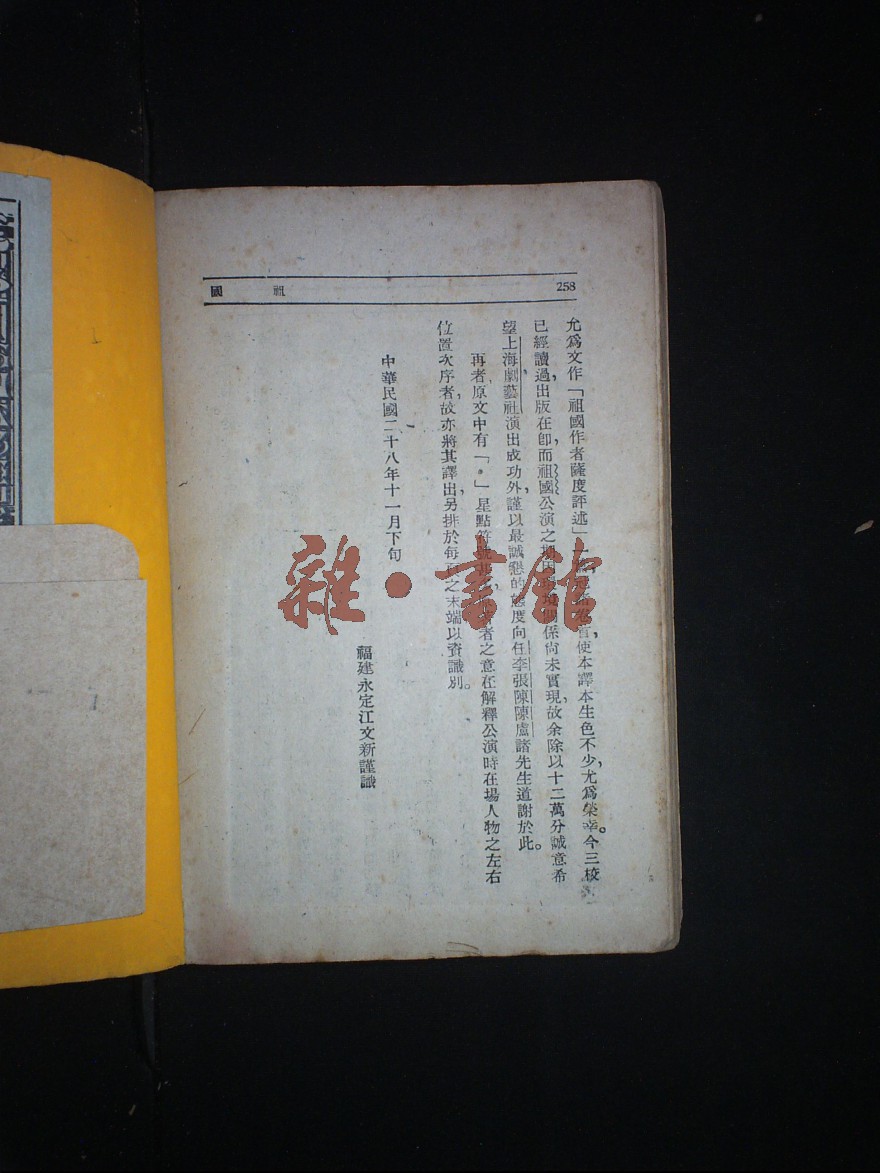 258
祖國
允爲文作「祖國作者薩度評述」一使本譯本生色不少，尤爲榮幸。今三校
已經讀過，出版在卽，而祖國公演之期因關係尚未實現，故余除以十二萬分誠意希
望上海劇藝社演出成功外，謹以最誠懇的態度向任李張陳陳盧諸先生道謝於此。
再者原文中有「*」星點符號者之意在解釋公演時在場人物之左右
位置次序者，故亦將其譯出另排於每頁之末端以資識別。
中華民國二十八年十一月下旬
福建永定江文新謹識
雜·書館